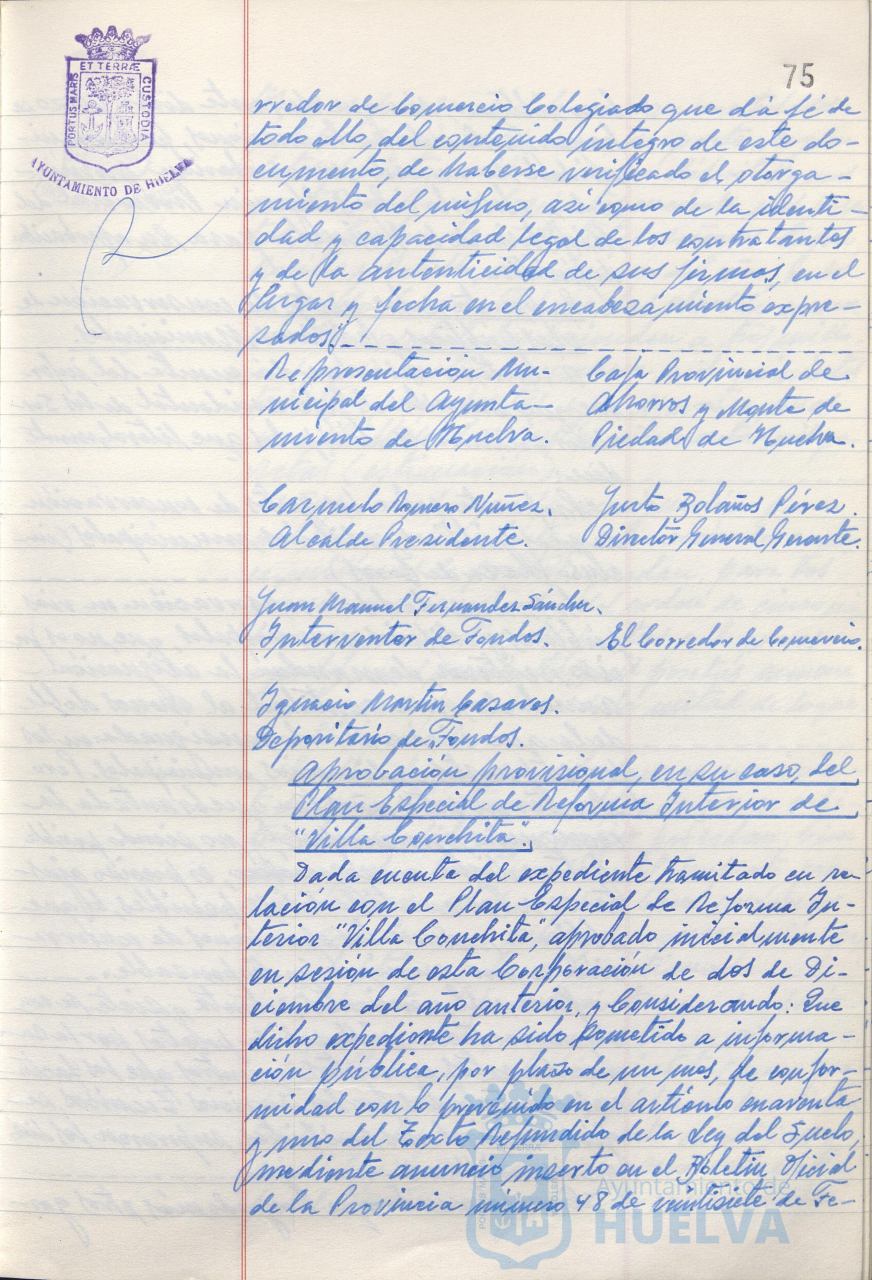 75
ET TERRÆ
PORTUS MARIS
CUSTODIA
AYUNTAMIENTO DE HUELVA
rredor de Comercio Colegiado que dá fé de
todo ello, del contenido íntegro de este do-
cumento, de haberse verificado el otorga-
miento del mismo, así como de la identi-
dad y capacidad legal de los contratantes
y de la autenticidad de sus firmas, en el
lugar y fecha en el encabezamiento expre-
sados".
Representación Mu-
nicipal del Ayunta-
miento de Huelva.
Caja Provincial de
Ahorros y Monte de
Piedad de Huelva.
Carmelo Romero Núñez.
Alcalde Presidente.
Justo Bolaños Pérez.
Director General Gerente.
Juan Manuel Fernandez Sánchez.
Interventor de Fondos.
El Corredor de Comercio.
Ignacio Martin Cazares.
Depositario de Fondos.
Aprobación provisional, en su caso, del
Plan Especial de Reforma Interior de
"Villa Conchita".
Dada cuenta del expediente tramitado en re-
lación con el Plan Especial de Reforma In-
terior "Villa Conchita", aprobado inicialmente
en sesión de esta Corporación de dos de Di-
ciembre del año anterior, y Considerando: Que
dicho expediente ha sido sometido a informa-
ción pública, por plazo de un mes, de confor-
midad con lo prevenido en el artículo cuarenta
y uno del Texto Refundido de la Ley del Suelo,
mediante anuncio inserto en el Boletín Oficial
de la Provincia número 48 de veintisiete de Fe-
Ayuntamiento de
HUELVA